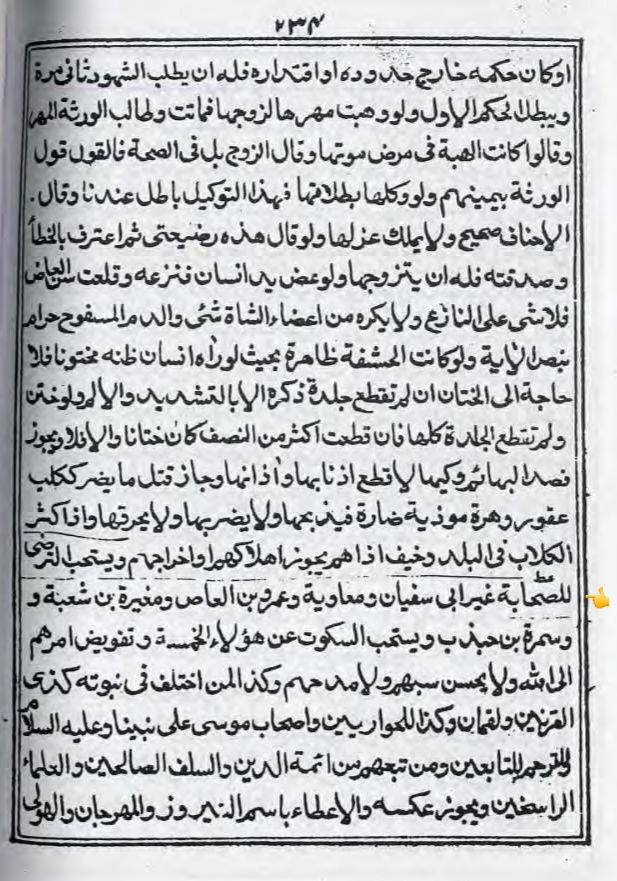 ٢٣٤
اوكان حكمه خارج حدوده او اقتداره فله ان يطلب الشهود ثانى مرة
ويبطل الحكم الاول ولو وهبت مهرها لزوجها فماتت وطالب الورثة المهر
وقالوا كانت الهبة فى مرض موتها وقال الزوج بل فى الصحة فالقول قول
الورثة بيمينهم ولو وكلها بطلاقها فهذا التوكيل باطل عندنا وقال .
الاحناف صحيح ولا يملك عزلها ولو قال هذه رضيعتى ثم اعترف بالخطأ
وصدقته فله ان يتزوجها ولو عض يد انسان فنزعه وقلعت سن العاض
فلا شى على النازع ولا يكره من اعضاء الشاة شئى والدم المسفوح حرام
بنص الاية ولو كانت الحشفة ظاهرة بحيث لو راه انسان ظنه مختونا فلا
حاجة الى الختان ان لم تقطع جلدة ذكره الا بالتشديد والالم ولو ختن
ولم تقطع الجلدة كلها فان قطعت اكثر من النصف كان ختانا والا فلا ويجوز
فصد البهائم وكيها لا قطع اذنابها واذانها وجاز قتل ما يضر ككلب
عقور وهرة موذية ضارة فيذبحها ولا يضربها ولا يحرقها واذا كثر
الكلاب فى البلد وخيف اذاهم يجوز اهلاكهم او اخراجهم ويستحب الترضى
للصحابة غير ابى سفيان ومعاوية وعمرو بن العاص ومغيرة بن شعبة و
وسمرة بن جندب ويستحب السكوت عن هؤلاء الخمسة وتفويض امرهم
الى الله ولا يحسن سبهم ولا مدحهم وكذا لمن اختلف فى نبوته كذى
القرنين ولقمان وكذا للحواريين واصحاب موسى على نبينا وعليه السلام
والترحم للتابعين ومن تبعهم من ائمة الدين والسلف الصالحين والعلماء
الراسخين ويجوز عكسه والاعطاء باسم النيروز والمهرجان والهولى